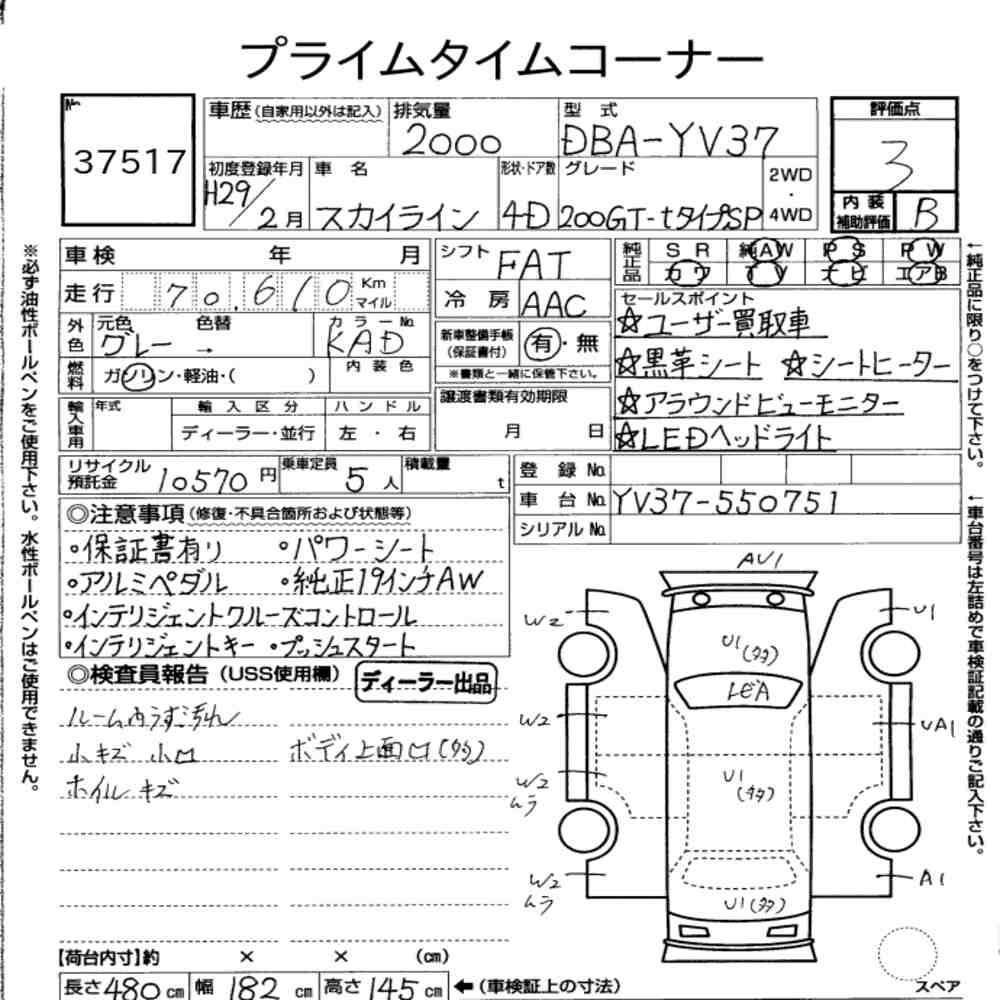 プライムタイムコーナー
No.
37517
車歴(自家用以外は記入)
排気量
2000
型 式
DBA-YV37
評価点
3
初度登録年月
H29/2月
車 名
スカイライン
形状・ドア数
4D
グレード
200GT-tタイプSP
2WD
・
4WD
内装
補助評価
B
車検 年 月
走行 70,610 Km
マイル
シフト
FAT
冷 房
AAC
純正品
SR 純AW PS PW
カワ TV ナビ エアB
外色
元色 色替
グレー →
カラーNo.
KAD
内装色
燃料
ガソリン・軽油・( )
新車整備手帳
(保証書付)
有・無
※書類と一緒に保管下さい。
セールスポイント
☆ユーザー買取車
☆黒革シート ☆シートヒーター
☆アラウンドビューモニター
☆LEDヘッドライト
輸入車用
年式
輸入区分
ディーラー・並行
ハンドル
左・右
譲渡書類有効期限
月 日
リサイクル
預託金
10570円
乗車定員
5人
積載量
t
登 録 No.
車 台 No. YV37-550751
シリアル No.
◎注意事項(修復・不具合箇所および状態等)
・保証書有り ・パワーシート
・アルミペダル ・純正19インチAW
・インテリジェントクルーズコントロール
・インテリジェントキー・プッシュスタート
◎検査員報告(USS使用欄)
ディーラー出品
ルーム内うす汚れ
小キズ 小凹 ボディ上面凹(タタ)
ホイルキズ
AU1
W2
U1
U1(タタ)
LEA
W2
UA1
W2
ムラ
U1
(タタ)
W2
ムラ
U1(タタ)
A1
スペア
【荷台内寸】約 × × (cm)
長さ480cm 幅182cm 高さ145cm ←(車検証上の寸法)
※必ず油性ボールペンをご使用下さい。水性ボールペンはご使用できません。
←純正品に限り○をつけて下さい。
←車台番号は左詰めで車検証記載の通りご記入下さい。